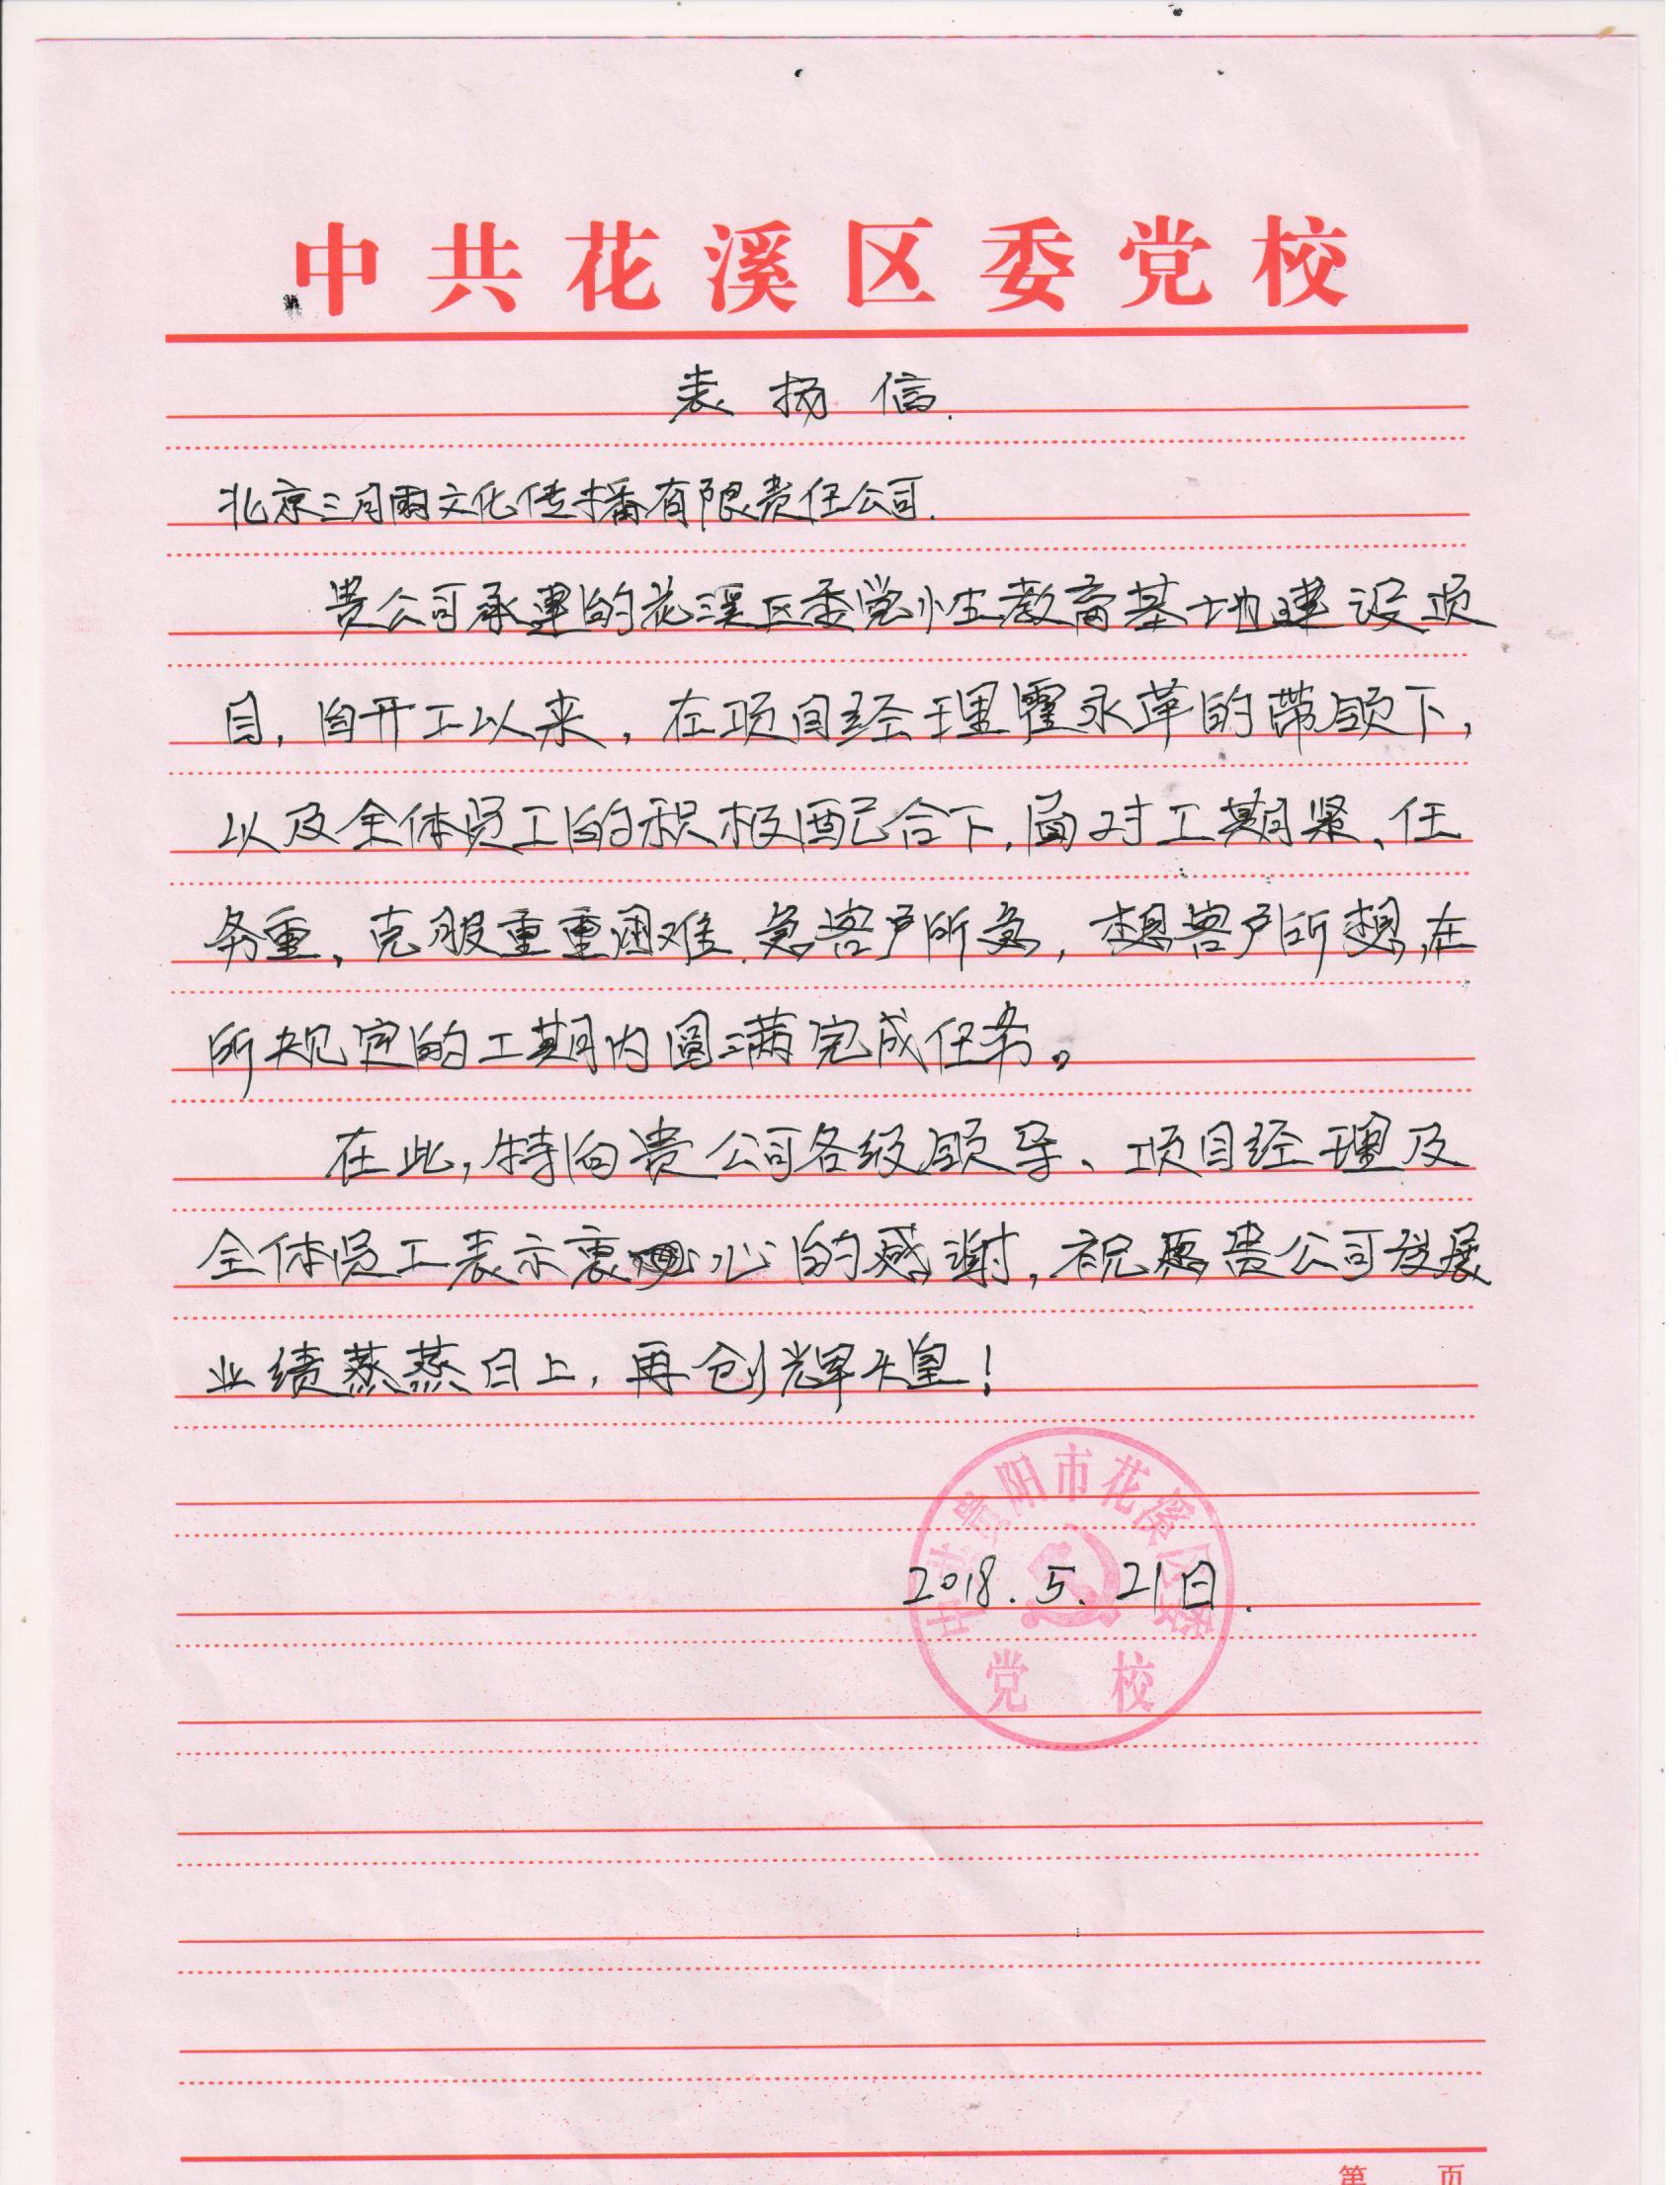 中共花溪区委党校
表扬信.
北京三月雨文化传播有限责任公司.
贵公司承建的花溪区委党性教育基地建设项
目,自开工以来,在项目经理霍永革的带领下,
以及全体员工的积极配合下,面对工期紧、任
务重,克服重重困难.急客户所急,想客户所想,在
所规定的工期内圆满完成任务。
在此,特向贵公司各级领导、项目经理及
全体员工表示衷心的感谢,祝愿贵公司发展
业绩蒸蒸日上,再创辉煌!
中共贵阳市花溪区委
2018.5.21日.
党校
第 页